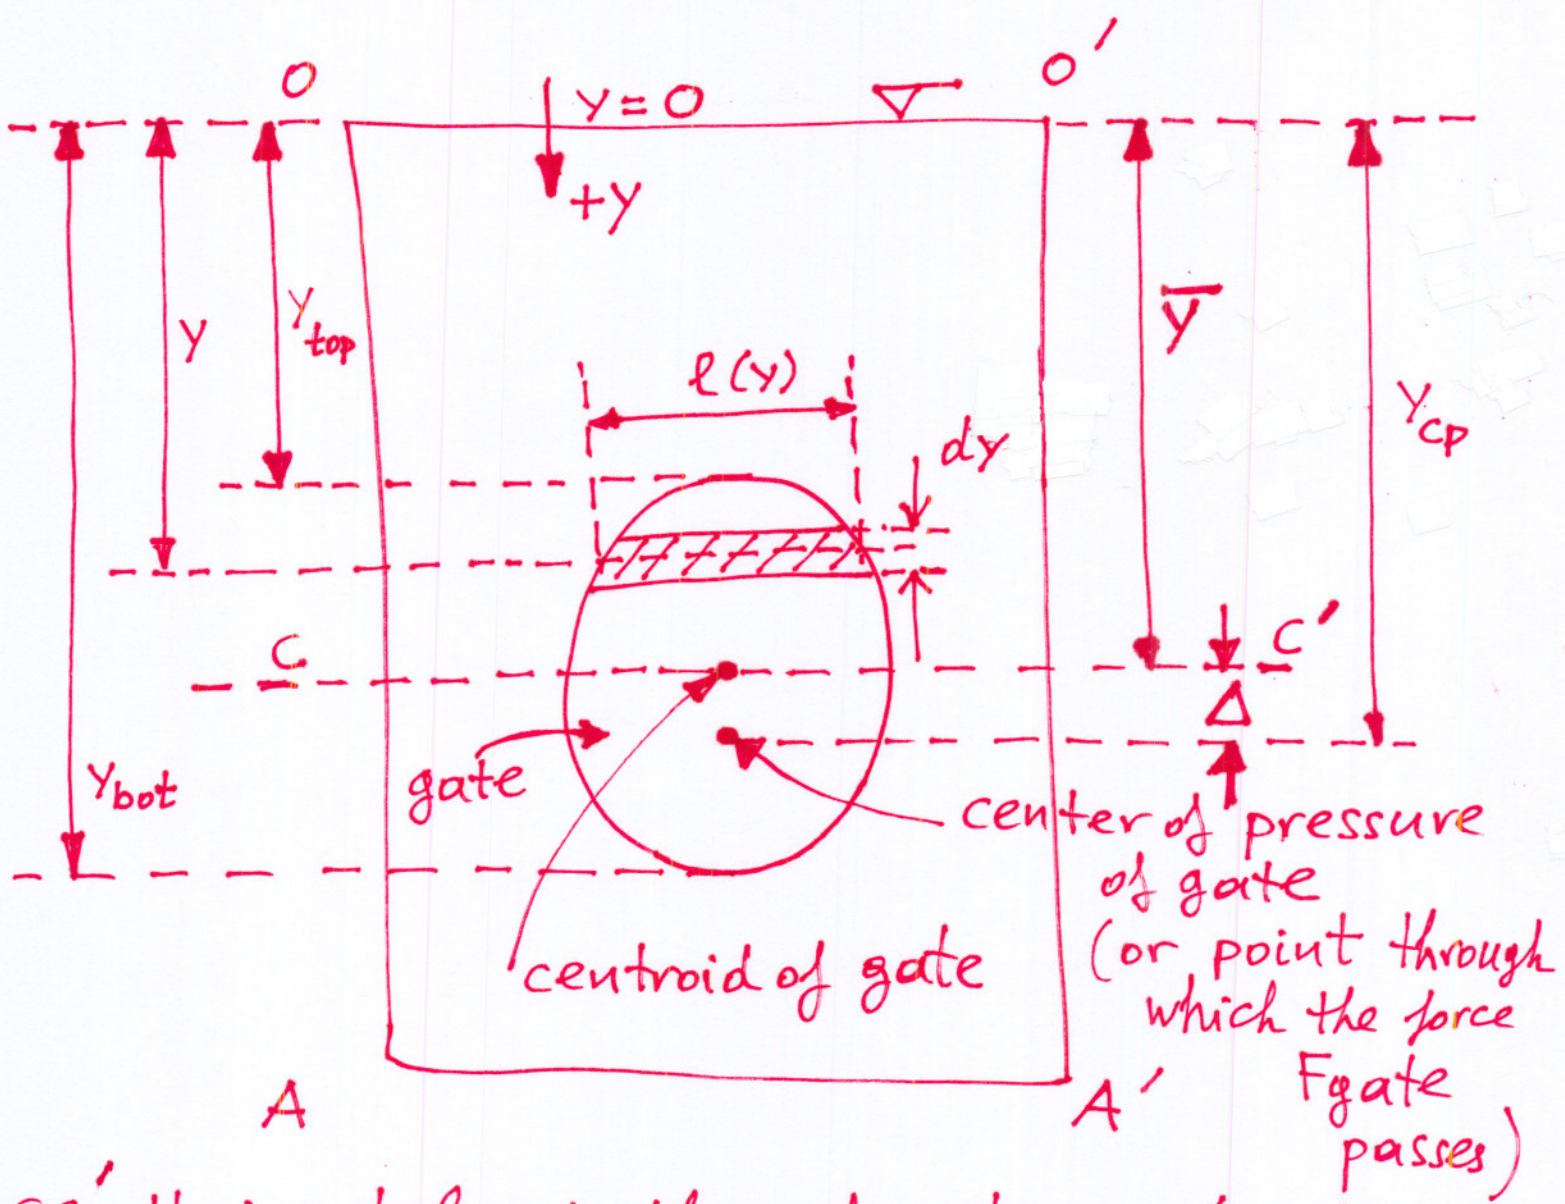 O
O′
y=0
+y
y
top
y
ȳ
y
cp
l(y)
dy
C
C′
Δ
gate
y
bot
center of pressure
of gate
(or point through
which the force
Fgate
passes)
centroid of gate
A
A′